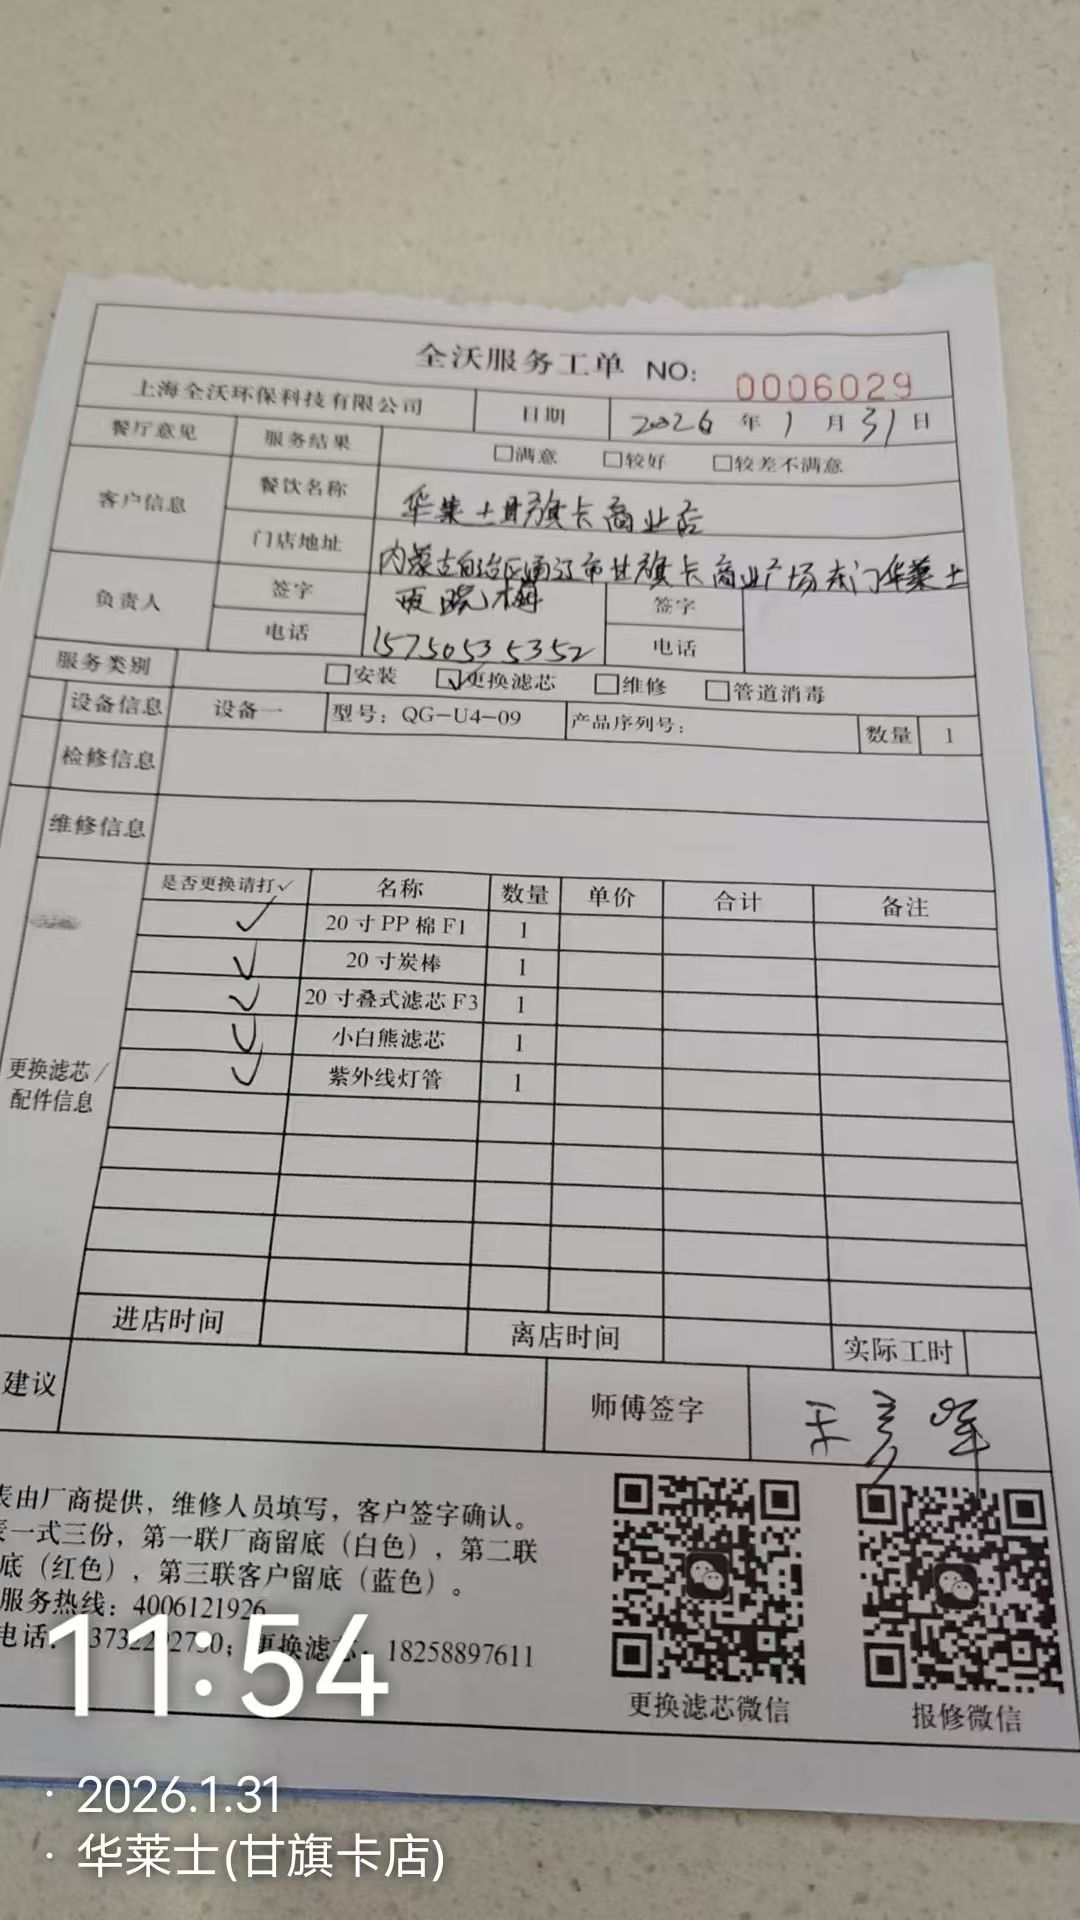 全沃服务工单 NO: 0006029
上海全沃环保科技有限公司 日期 2026 年 1 月 31 日
餐厅意见 服务结果 □满意 □较好 □较差不满意
客户信息 餐饮名称 华莱士甘旗卡商业店
门店地址 内蒙古自治区通辽市甘旗卡商业广场东门华莱士
负责人 签字 晓梅 签字
电话 15750535352 电话
服务类别 □安装 ☑更换滤芯 □维修 □管道消毒
设备信息 设备一 型号：QG-U4-09 产品序列号： 数量 1
检修信息
维修信息
是否更换请打✓ 名称 数量 单价 合计 备注
✓ 20寸PP棉F1 1
✓ 20寸炭棒 1
✓ 20寸叠式滤芯F3 1
✓ 小白熊滤芯 1
✓ 紫外线灯管 1
更换滤芯/
配件信息
进店时间 离店时间 实际工时
建议 师傅签字 王彦军
表由厂商提供，维修人员填写，客户签字确认。
表一式三份，第一联厂商留底（白色），第二联
底（红色），第三联客户留底（蓝色）。
服务热线：4006121926
电话： 更换滤芯：18258897611
更换滤芯微信 报修微信
11:54
· 2026.1.31
· 华莱士(甘旗卡店)